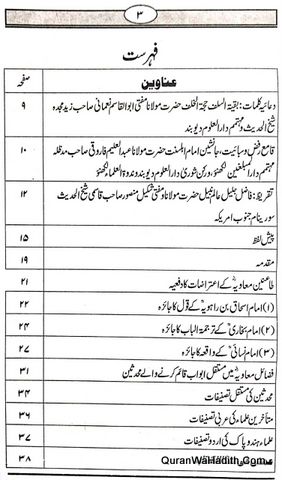 ۳
فہرست
عناوین
صفحہ
دعائیہ کلمات: بقیۃ السلف حجۃ الخلف حضرت مولانا مفتی ابوالقاسم نعمانی صاحب زید مجدہ
شیخ الحدیث و مہتمم دارالعلوم دیوبند
۹
قامع رفض و سبائیت، جانشین امام اہلسنت حضرت مولانا عبدالعلیم فاروقی صاحب مدظلہ
مہتمم دارالمبلغین لکھنؤ، و رکن شوریٰ دارالعلوم دیوبند و ندوۃ العلماء لکھنؤ
۱۰
تقریظ: فاضل جلیل عالم نبیل حضرت مولانا و مفتی شکیل منصور صاحب قاسمی شیخ الحدیث
سورینام جنوب امریکہ
۱۲
پیش لفظ
۱۵
مقدمہ
۱۹
طاعنین معاویہؓ کے اعتراضات کا دفعیہ
۲۱
(۱) امام اسحاق بن راہویہؒ کے قول کا جائزہ
۲۲
(۲) امام بخاریؒ کے ترجمۃ الباب کا جائزہ
۲۴
(۳) امام نسائیؒ کے واقعہ کا جائزہ
۲۷
فضائل معاویہؓ میں مستقل ابواب قائم کرنے والے محدثین
۳۱
محدثین کی مستقل تصنیفات
۳۴
متأخرین علماء کی عربی تصنیفات
۳۶
علماء ہند و پاک کی اردو تصنیفات
۳۷
۳۸
QuranWaHadith.Com